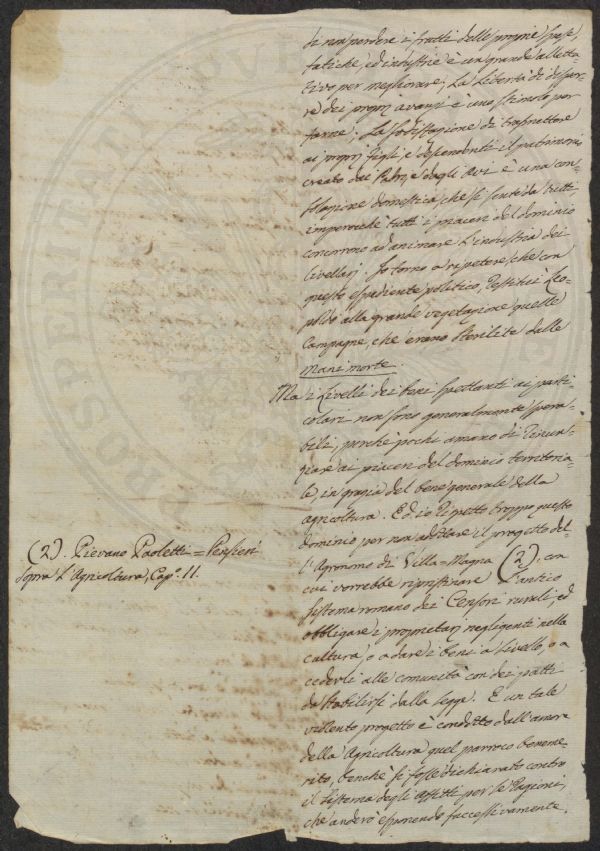 di non perdere i frutti delle proprie spese,
fatiche, ed industrie è un grande alletta-
tivo per megliorare; La libertà di dispor-
re dei propri avanzi è uno stimolo per
farne; La sodisfazione di trasmettere
ai propri figli, e dipendenti il patrimonio
creato dai Padri, e dagli Avi è una con-
solazione domestica, che si sente da tutti
imperocchè tutti i piaceri del dominio
concorrono ad animare l'industria dei
livellarj. Io torno a ripetere, che con
questo espediente politico, restituì Leo-
poldo alla grande vegetazione quelle
Campagne, che erano sterilite dalle
mani morte.
Ma i Livelli dei beni spettanti ai parti-
colari non sono generalmente spera-
bili, perchè pochi amano di rinun-
ziare ai piaceri del dominio territoria-
le, in grazia del bene generale della
agricoltura. Ed io rispetto troppo questo
dominio per non adottare il progetto del-
l'Agronomo di Villa=Magna (2), con
cui vorrebbe ripristinare l'antico
sistema romano dei Censori rurali, ed
obbligare i proprietarj negligenti nella
cultura, o a dare i beni a livello, o a
cederli alle comunità con dei patti
da stabilirsi dalla legge. E un tale
violento progetto è condotto dall'amore
della Agricoltura quel parroco beneme-
rito, benchè si fosse dichiarato contro
il sistema degli Affitti per le ragioni,
che anderò esponendo successivamente.
(2). Pievano Paoletti = Pensieri
sopra l'Agricoltura, Cap.o 11.